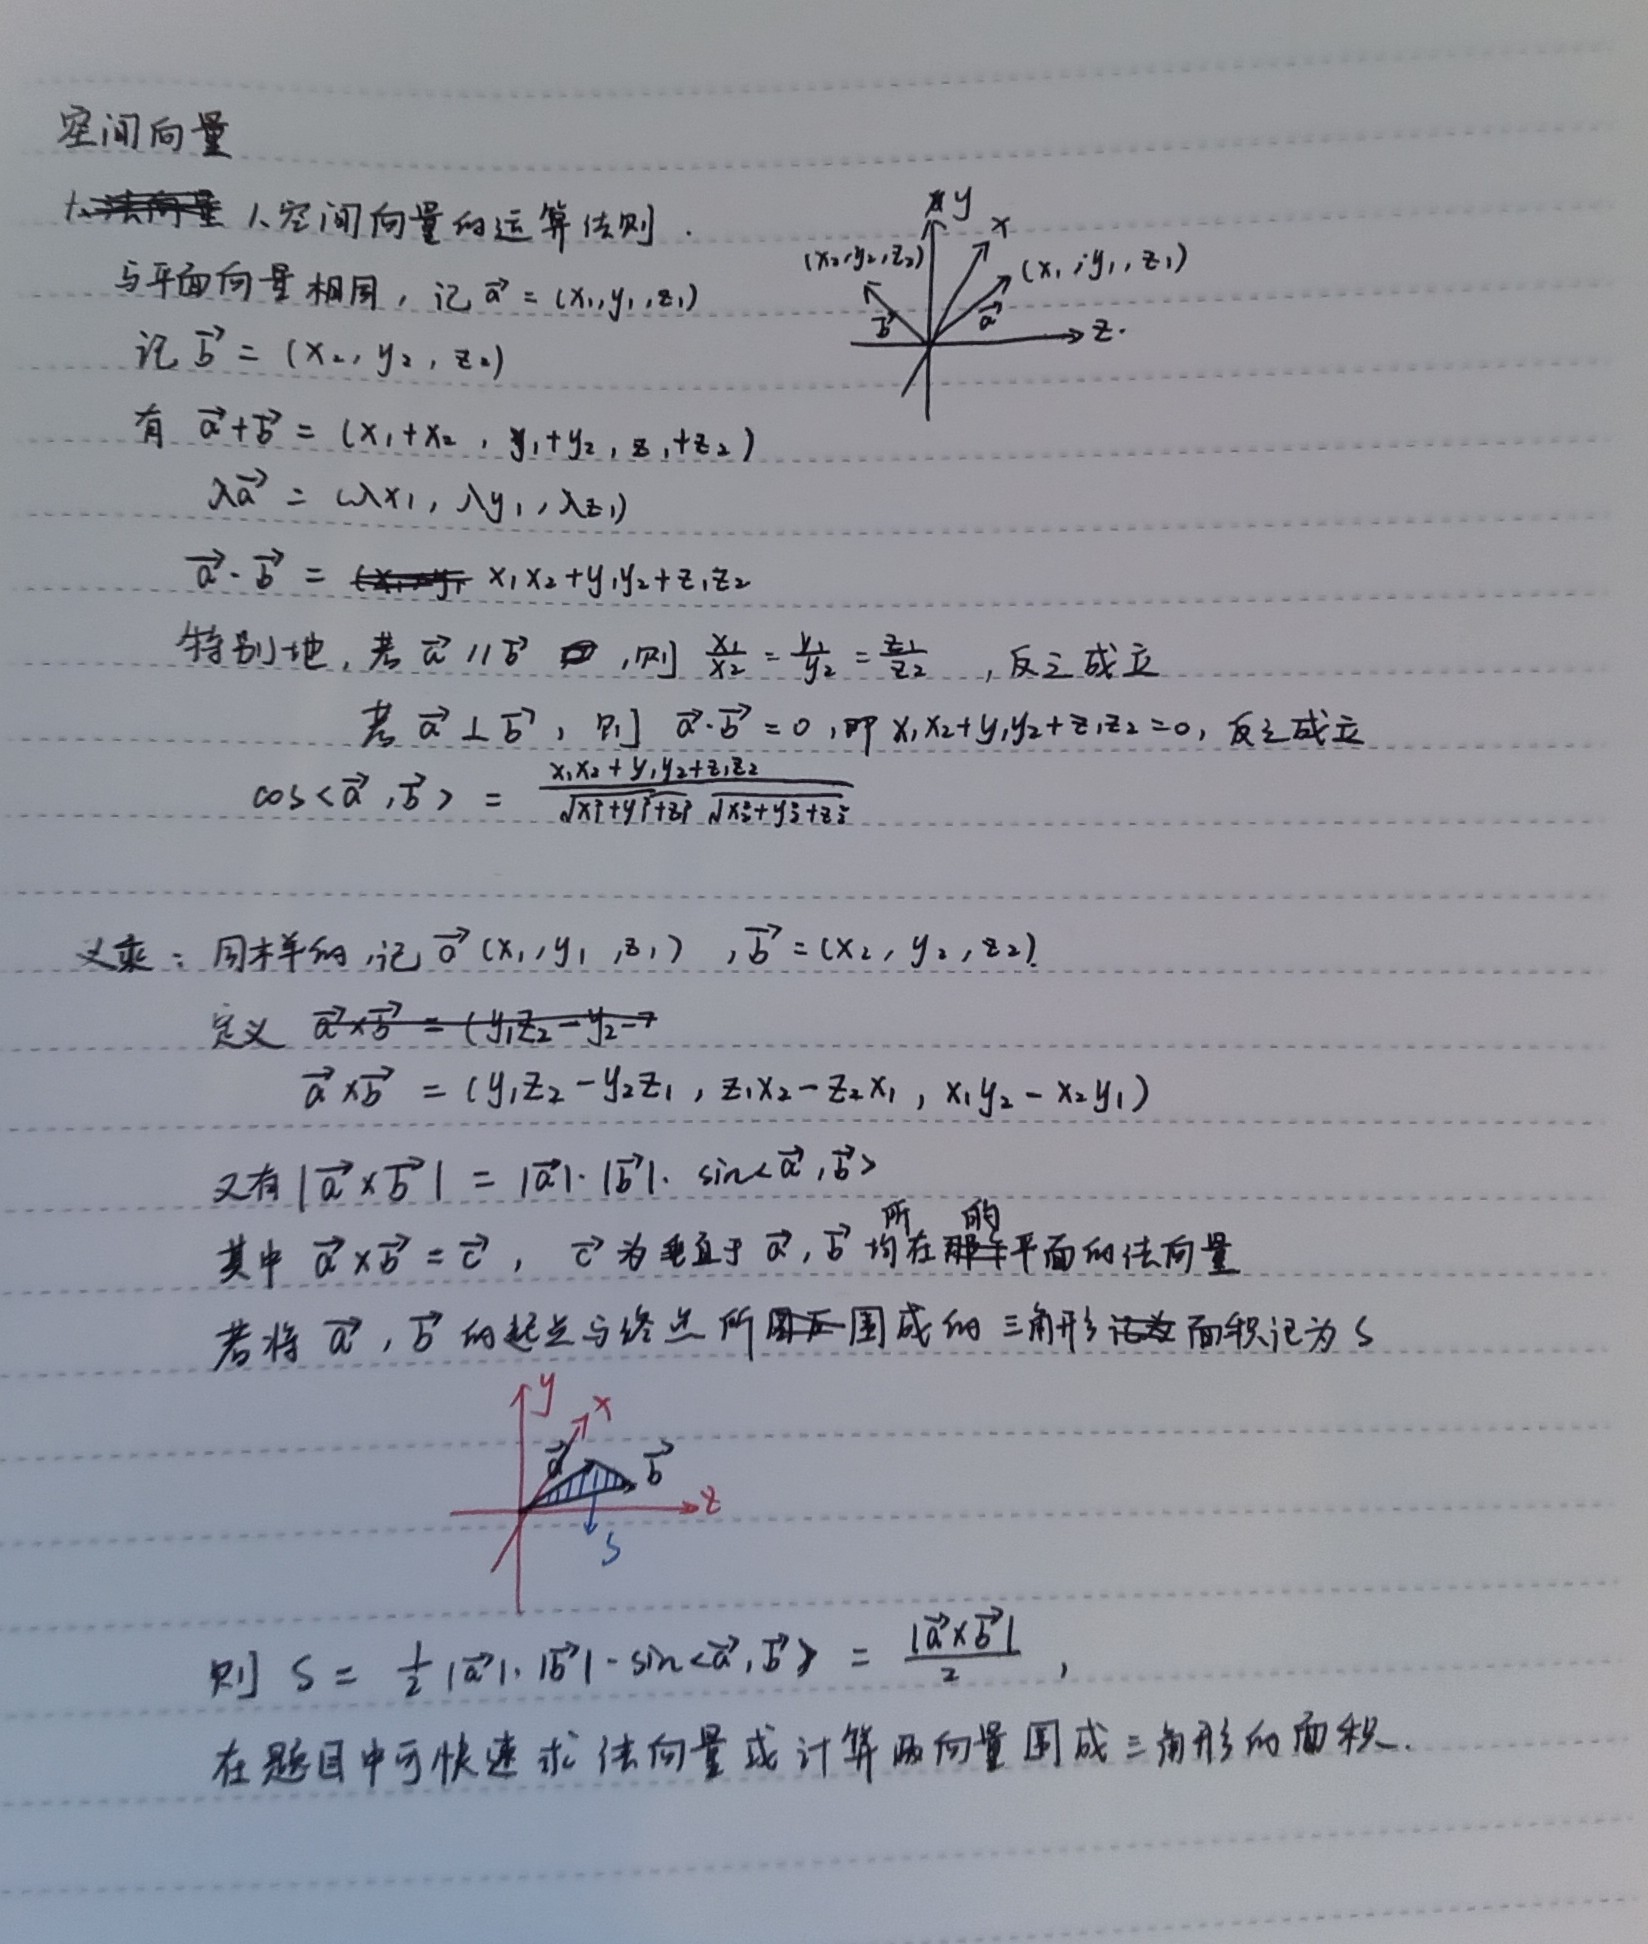 空间向量
1、空间向量的运算法则.
y
x
(x₂,y₂,z₂)
(x₁,y₁,z₁)
b⃗
a⃗
z.
与平面向量相同，记 a⃗ = (x₁,y₁,z₁)
记 b⃗ = (x₂, y₂, z₂)
有 a⃗+b⃗ = (x₁+x₂, y₁+y₂, z₁+z₂)
λa⃗ = (λx₁, λy₁, λz₁)
a⃗·b⃗ = x₁x₂+y₁y₂+z₁z₂
特别地，若 a⃗ // b⃗ ，则 x₁/x₂ = y₁/y₂ = z₁/z₂ ，反之成立
若 a⃗ ⊥ b⃗ ，则 a⃗·b⃗ = 0 ,即 x₁x₂+y₁y₂+z₁z₂=0，反之成立
cos<a⃗,b⃗> = (x₁x₂+y₁y₂+z₁z₂)/(√(x₁²+y₁²+z₁²) √(x₂²+y₂²+z₂²))
叉乘：同样的,记 a⃗ (x₁,y₁,z₁) , b⃗ = (x₂, y₂, z₂).
定义 a⃗×b⃗ = (y₁z₂-y₂-z
a⃗×b⃗ = (y₁z₂-y₂z₁, z₁x₂-z₂x₁, x₁y₂-x₂y₁)
又有|a⃗×b⃗| = |a⃗|·|b⃗|· sin<a⃗,b⃗>
其中 a⃗×b⃗ = c⃗ ， c⃗ 为垂直于 a⃗, b⃗ 均所在的平面的法向量
若将 a⃗, b⃗ 的起点与终点所围成的三角形面积记为 S
y
x
a⃗
b⃗
z
S
则 S = 1/2 |a⃗|·|b⃗|·sin<a⃗,b⃗> = |a⃗×b⃗|/2 ，
在题目中可快速求法向量或计算两向量围成三角形的面积.